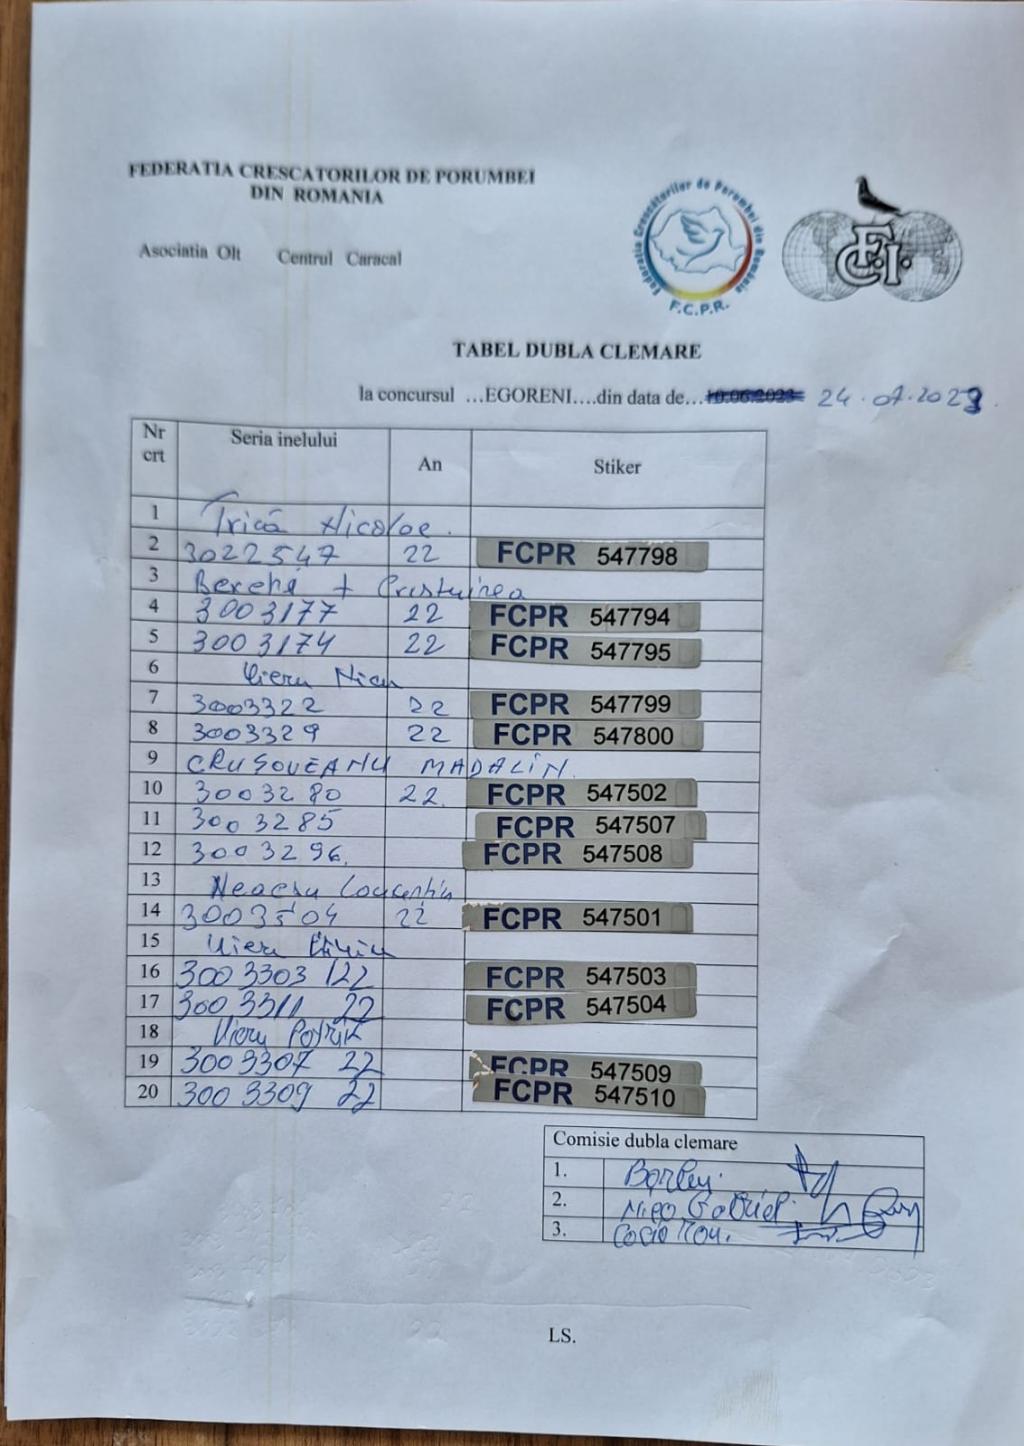 FEDERATIA CRESCATORILOR DE PORUMBEI
DIN ROMANIA
Asociatia Olt Centrul Caracal
Federatia Crescătorilor de Porumbei din România
F.C.P.R.
F.C.I.
TABEL DUBLA CLEMARE
la concursul ...EGORENI....din data de... 24.07.2023
Nr crt Seria inelului An Stiker
1 Trică Nicolae
2 3022547 22 FCPR 547798
3 +
4 3003177 22 FCPR 547794
5 3003174 22 FCPR 547795
6 Vieru Nicu
7 3003322 22 FCPR 547799
8 3003329 22 FCPR 547800
9 CRUȘOVEANU MADALIN
10 3003280 22 FCPR 547502
11 3003285 FCPR 547507
12 3003296 FCPR 547508
13 Neacsu
14 3003504 22 FCPR 547501
15 Vieru
16 3003303 22 FCPR 547503
17 3003311 22 FCPR 547504
18 Vieru Patrik
19 3003307 22 FCPR 547509
20 3003309 22 FCPR 547510
Comisie dubla clemare
1.
2. Gabriel
3.
LS.